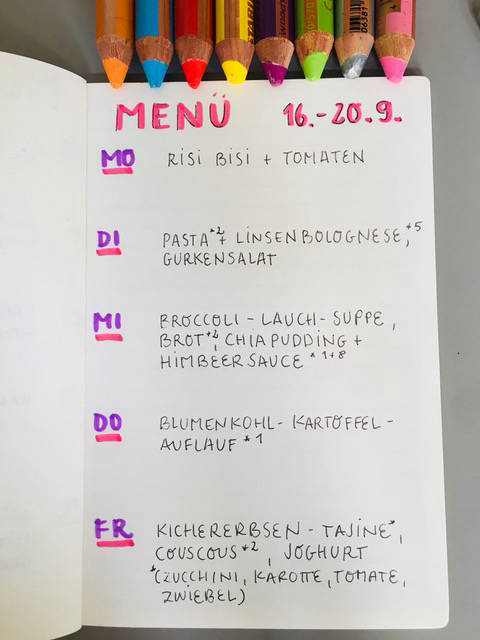 MENÜ 16.-20.9.
MO RISI BISI + TOMATEN
DI PASTA*2 + LINSENBOLOGNESE,*5
GURKENSALAT
MI BROCCOLI-LAUCH-SUPPE,
BROT*2, CHIAPUDDING +
HIMBEERSAUCE *1+8
DO BLUMENKOHL-KARTOFFEL-
AUFLAUF *1
FR KICHERERBSEN-TAJINE*,
COUSCOUS*2, JOGHURT
*(ZUCCHINI, KAROTTE, TOMATE,
ZWIEBEL)